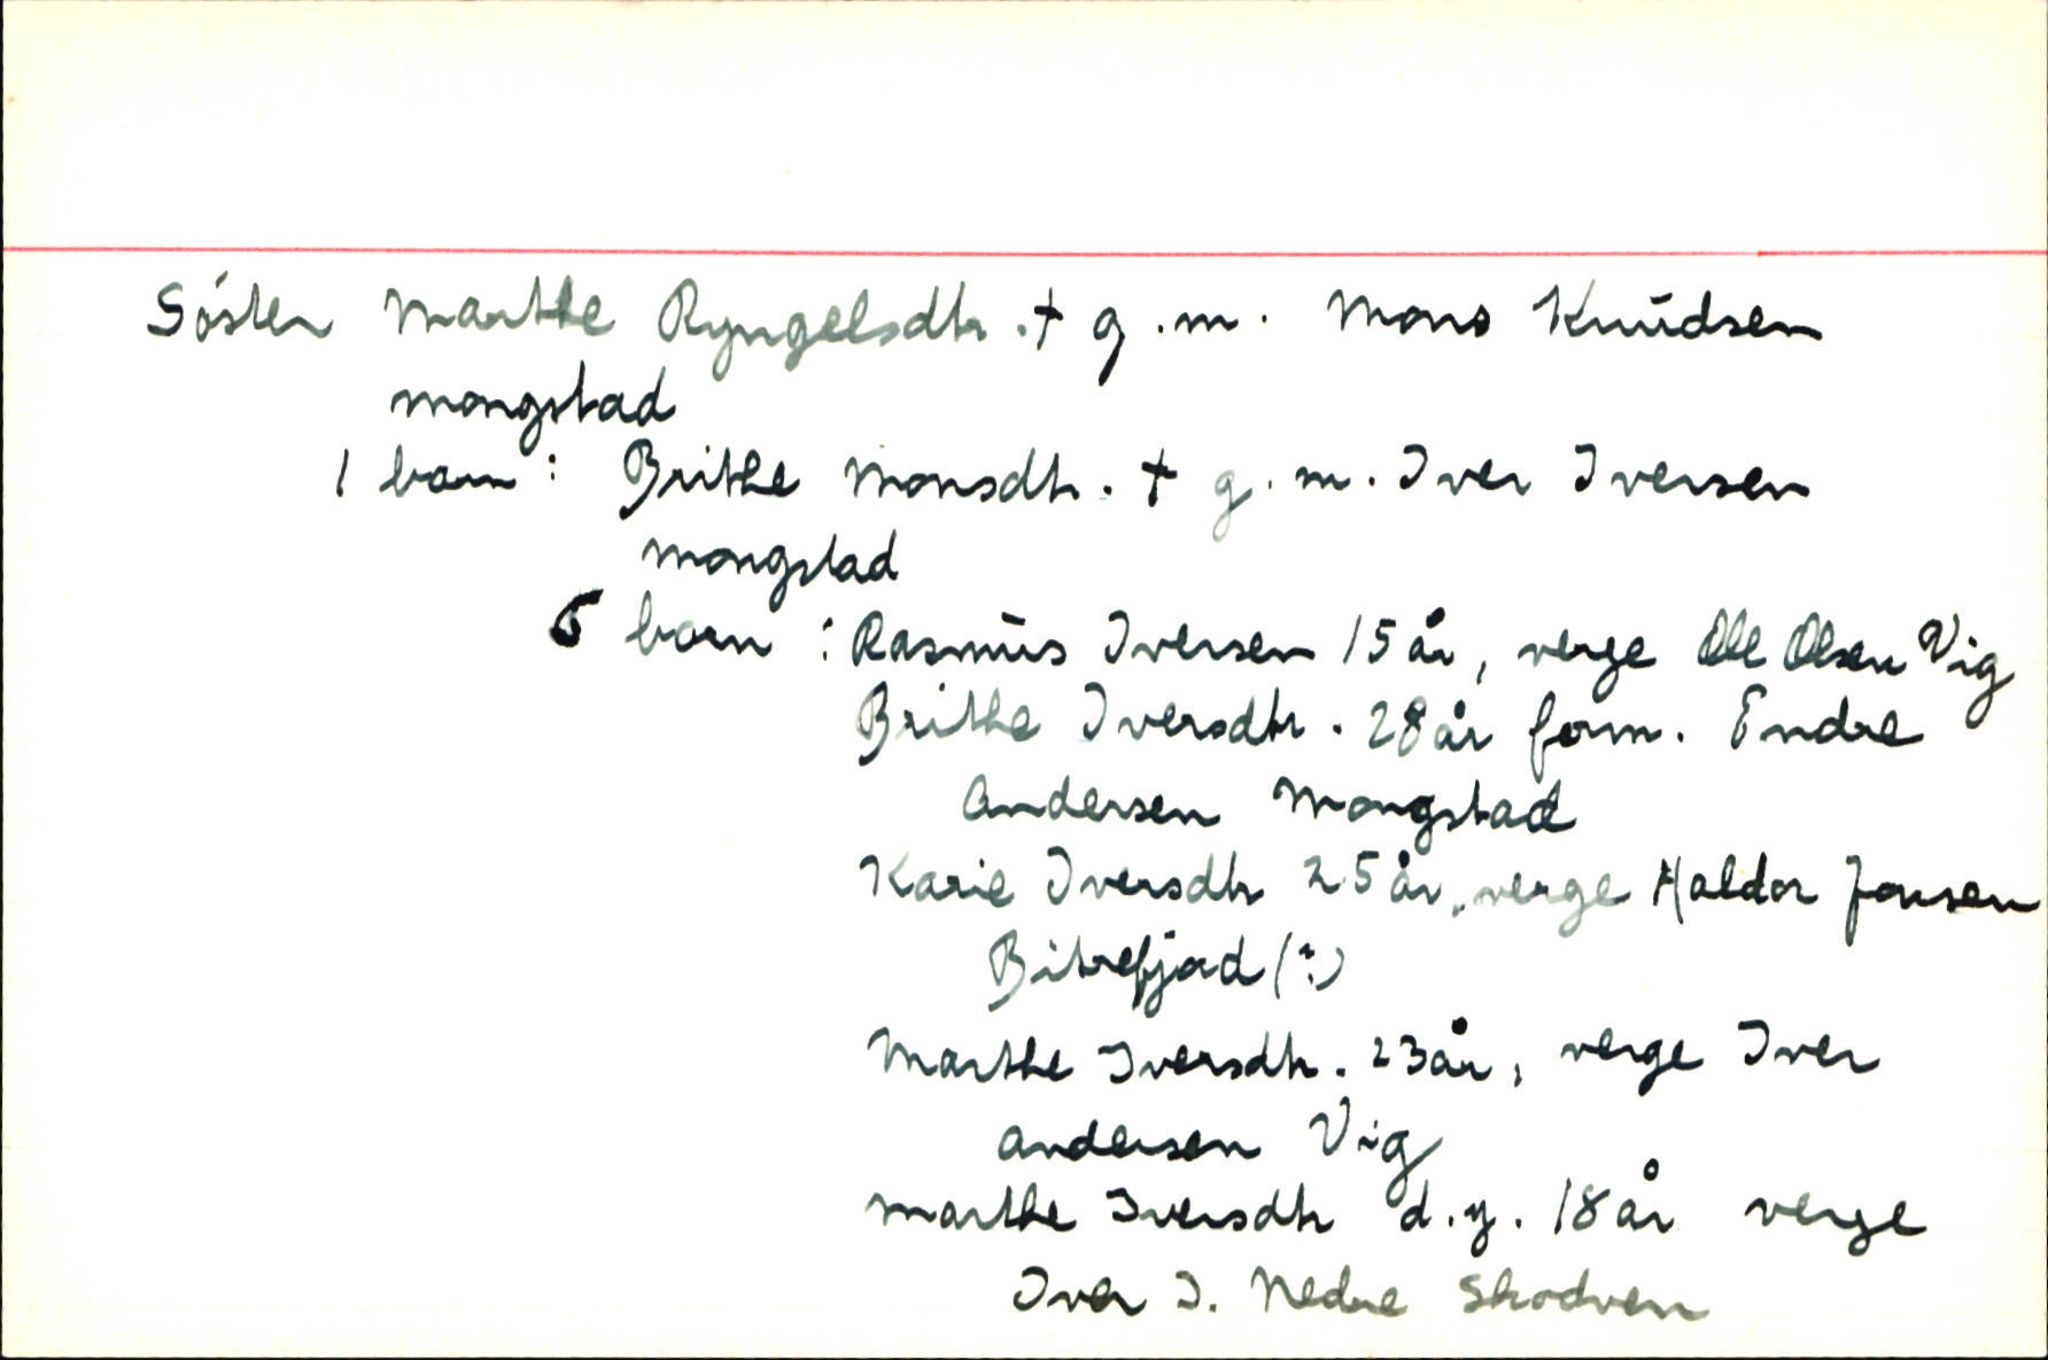 Söster Marthe Ryngelsdtr. + g.m. Mons Knudsen
Mongstad
1 barn : Brithe Monsdtr. + g.m. Iver Iversen
Mongstad
5 barn : Rasmus Iversen 15 år, verge Ole Olsen Vig
Brithe Iversdtr. 28 år form. Endre
Andersen Mongstad
Karie Iversdtr 25 år, verge Haldor Jonsen
Bitrefjord (?)
Marthe Iversdtr. 23 år, verge Iver
Andersen Vig
Marthe Iversdtr d.y. 18 år verge
Iver I. Nedre Skodven